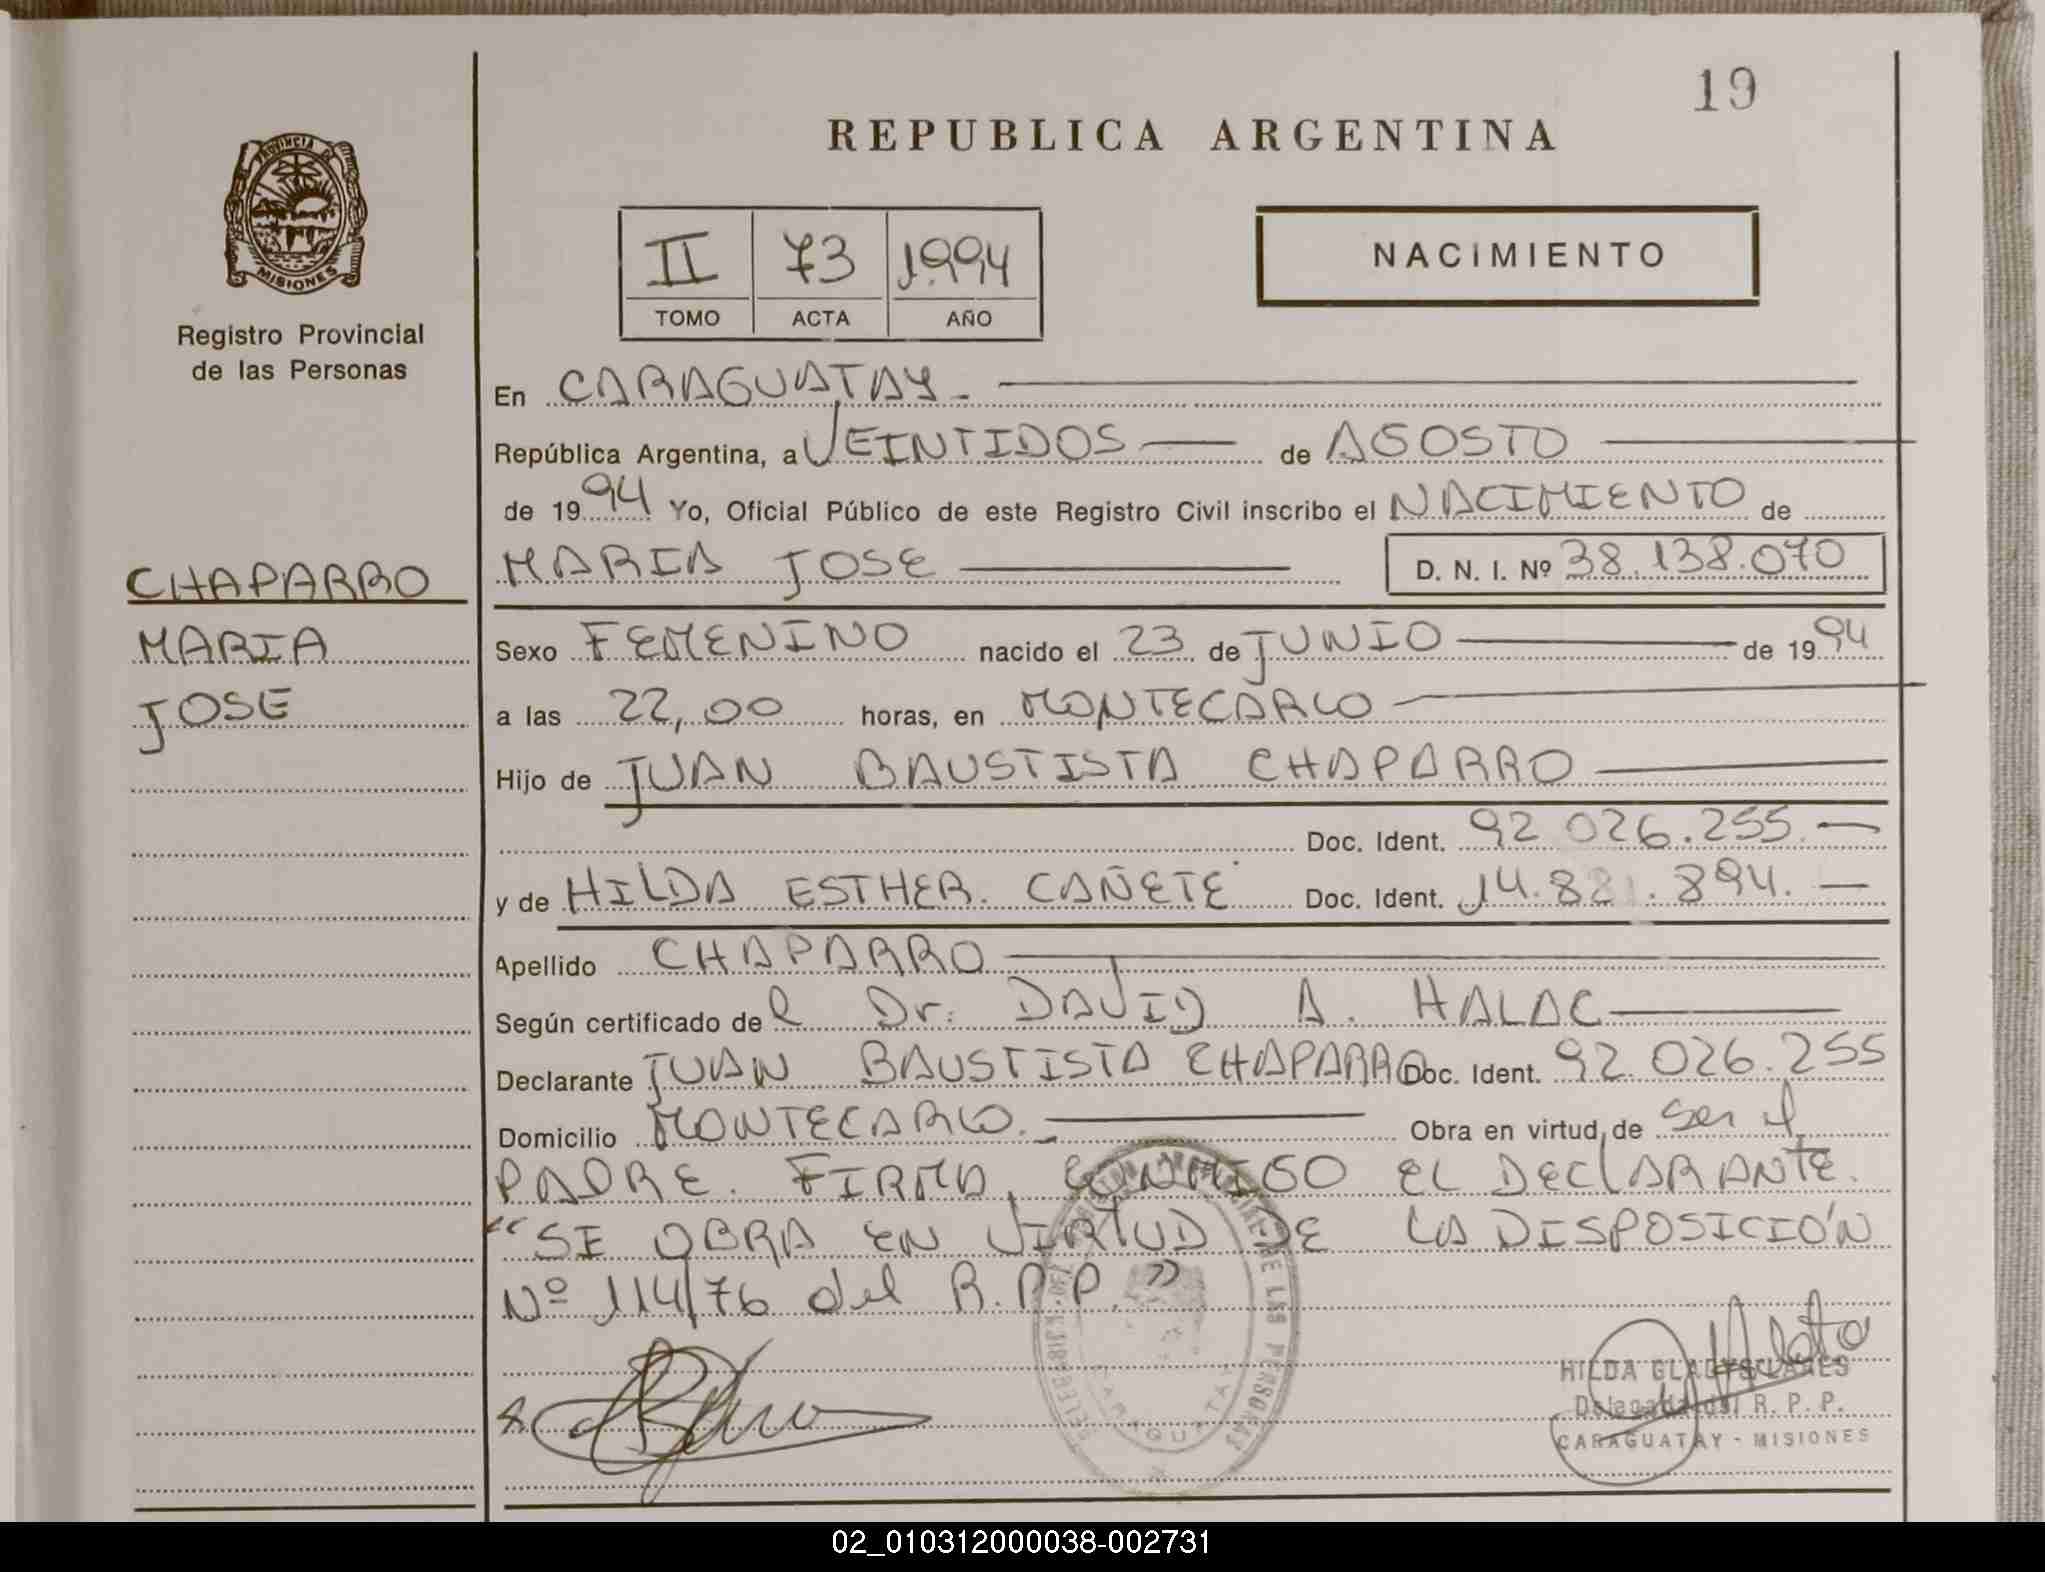 19
REPUBLICA ARGENTINA
PROVINCIA DE
MISIONES
Registro Provincial
de las Personas
II 73 1994
TOMO ACTA AÑO
NACIMIENTO
En CARAGUATAY.-
República Argentina, a VEINTIDOS de AGOSTO
de 1994 Yo, Oficial Público de este Registro Civil inscribo el NACIMIENTO de
MARIA JOSE D. N. I. Nº 38.138.070
CHAPARRO
MARIA
JOSE
Sexo FEMENINO nacido el 23 de JUNIO de 1994
a las 22,00 horas, en MONTECARLO
Hijo de JUAN BAUSTISTA CHAPARRO
Doc. Ident. 92 026.255.
y de HILDA ESTHER. CAÑETE Doc. Ident. 14.821.894.
Apellido CHAPARRO
Según certificado del Dr. DAVID A. HALAC
Declarante JUAN BAUSTISTA CHAPARRO Doc. Ident. 92.026.255
Domicilio MONTECARLO. Obra en virtud de ser el
PADRE. FIRMA CONMIGO EL DECLARANTE.
"SE OBRA EN VIRTUD DE LA DISPOSICIÓN
Nº 114/76 del R.P.P."
CARAGUATAY
HILDA GLADYS LARES
Delegada del R. P. P.
CARAGUATAY - MISIONES
02_010312000038-002731